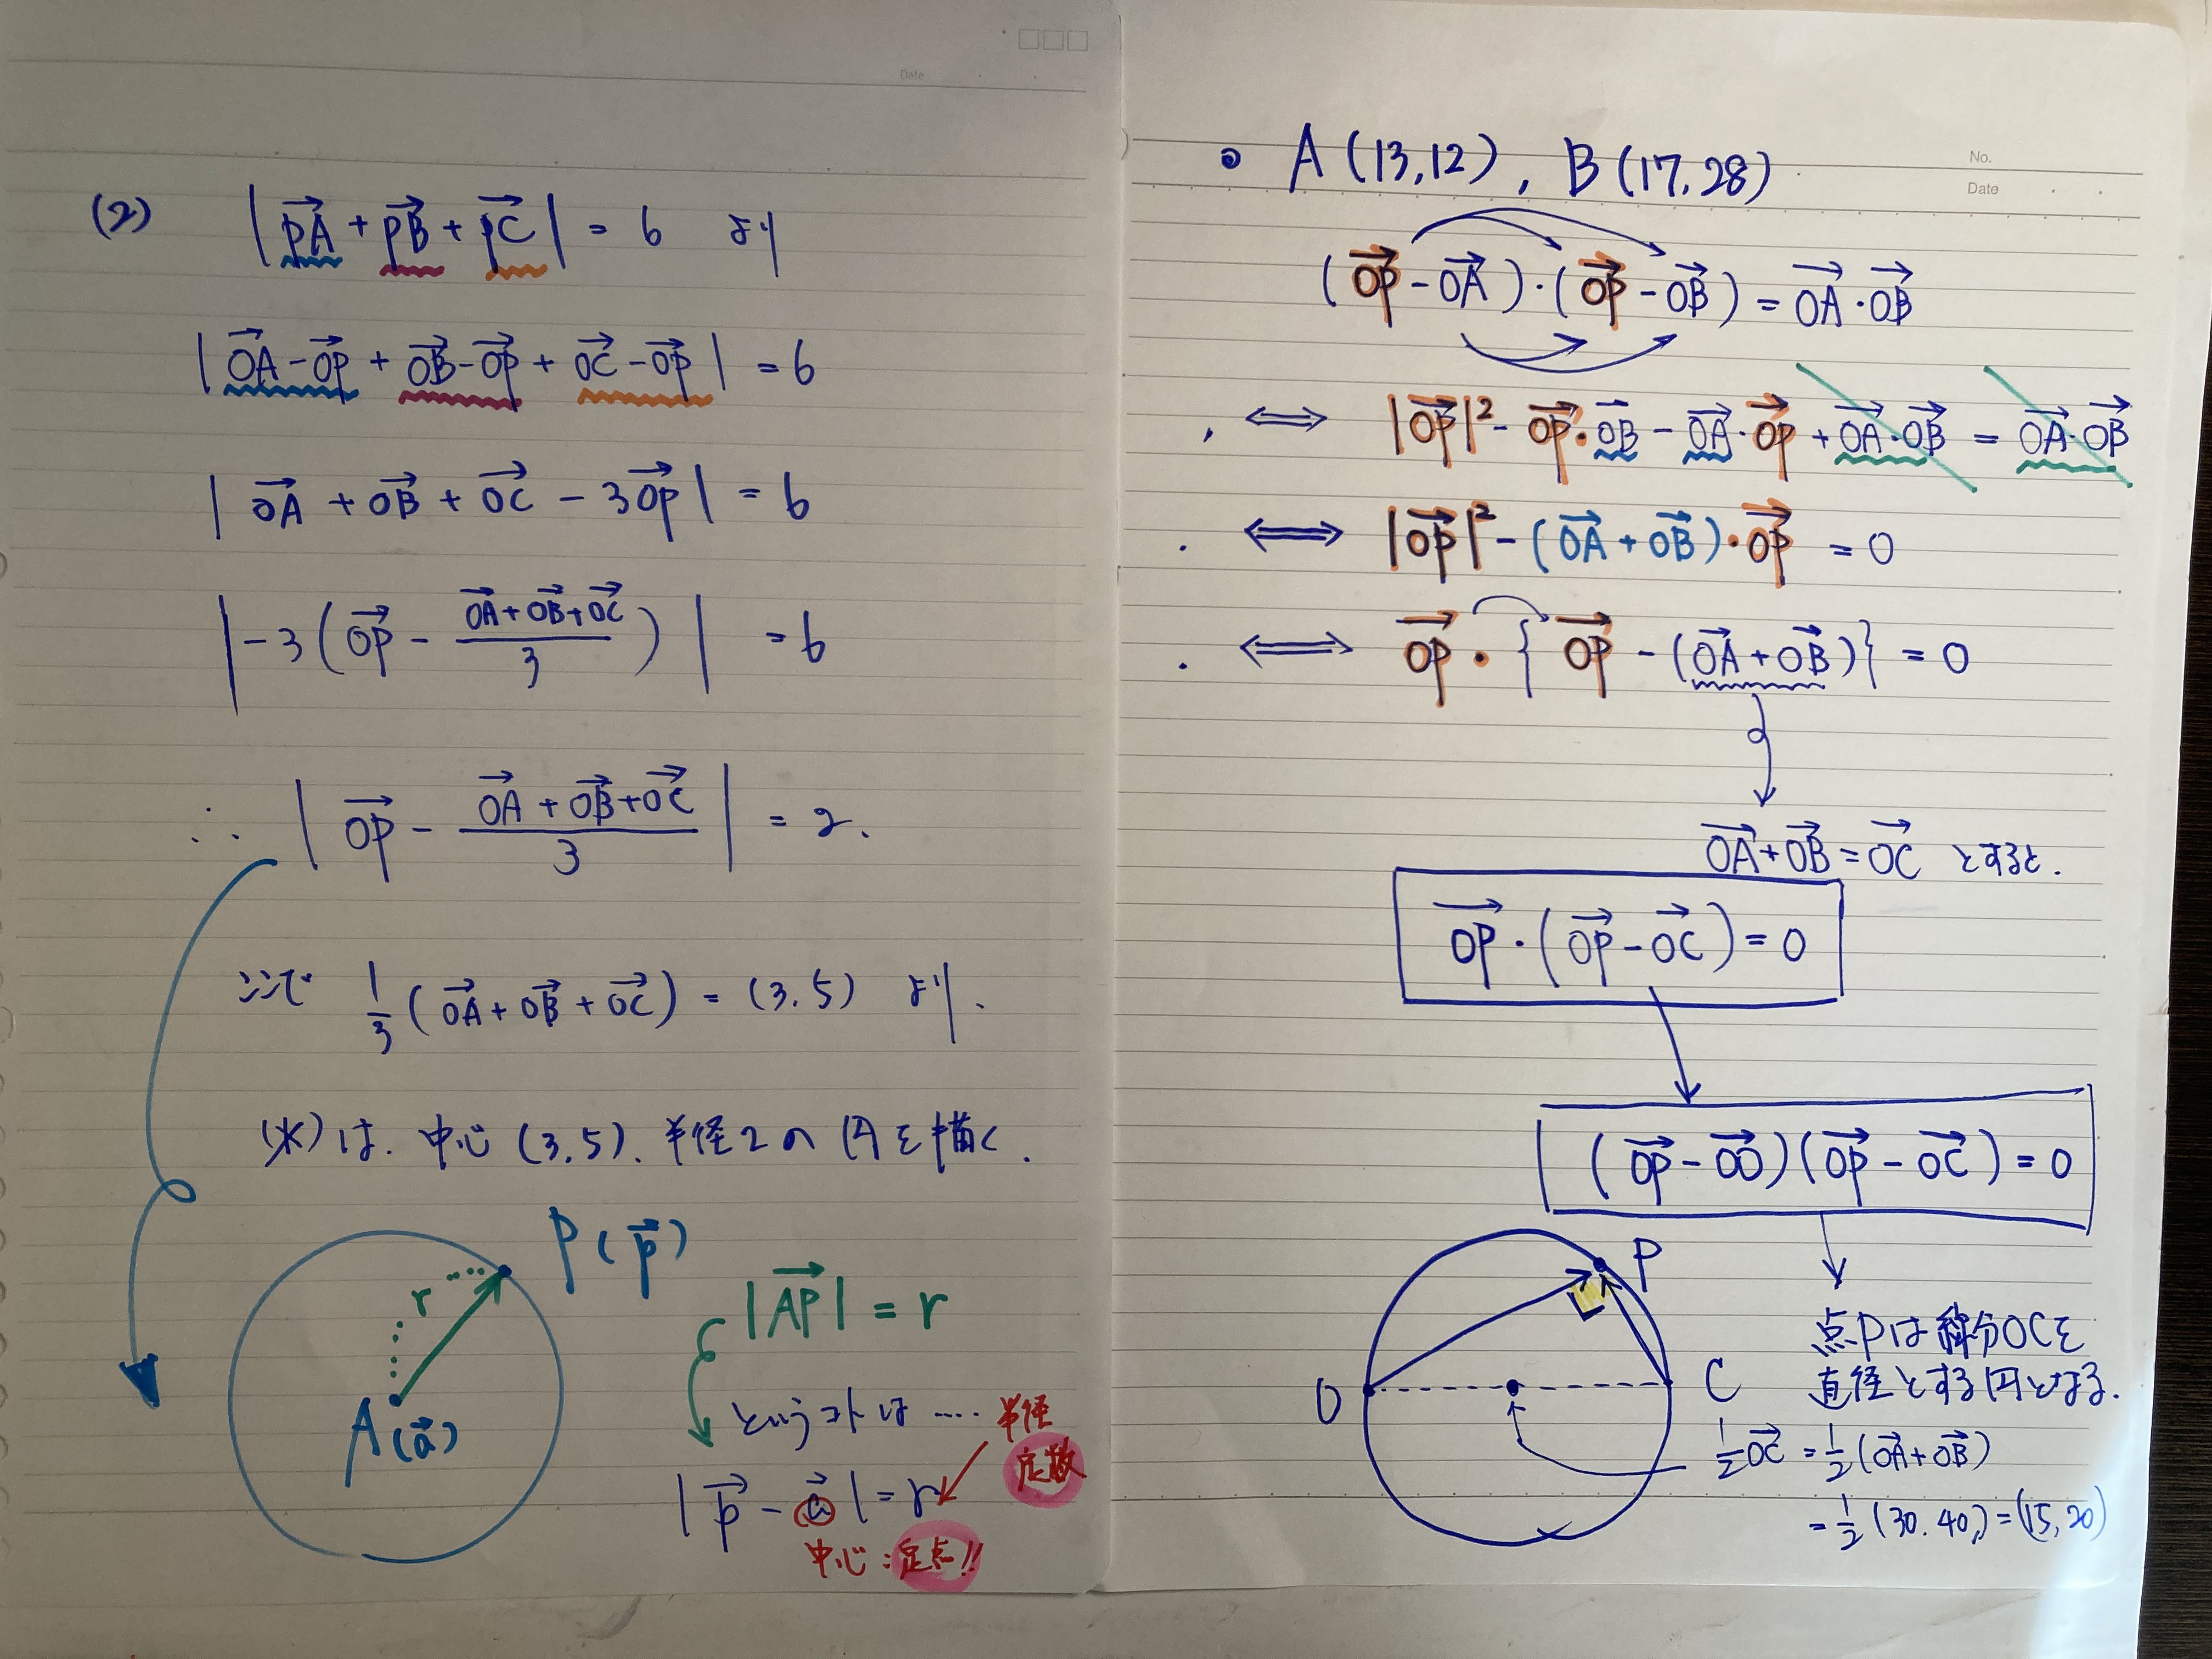 Date
(2) |PA→ + PB→ + PC→| = 6 より
|OA→ - OP→ + OB→ - OP→ + OC→ - OP→| = 6
|OA→ + OB→ + OC→ - 3OP→| = 6
|-3(OP→ - (OA→+OB→+OC→)/3)| = 6
∴ |OP→ - (OA→+OB→+OC→)/3| = 2.
ここで 1/3(OA→+OB→+OC→) = (3,5) より、
(※)は、中心(3,5)、半径2の円を描く.
P(p→)
r
A(a→)
|AP→| = r
ということは ....
半径
定数
|p→ - a→| = r
中心:定点!!
No.
Date
• A(13,12), B(17,28)
(OP→ - OA→)・(OP→ - OB→) = OA→・OB→
⇔ |OP→|² - OP→・OB→ - OA→・OP→ + OA→・OB→ = OA→・OB→
⇔ |OP→|² - (OA→+OB→)・OP→ = 0
⇔ OP→・{OP→ - (OA→+OB→)} = 0
OA→+OB→=OC→ とすると.
OP→・(OP→-OC→) = 0
(OP→-OO→)(OP→-OC→) = 0
P
O
C
点Pは線分OCを
直径とする円となる.
1/2 OC→ = 1/2(OA→+OB→)
= 1/2(30,40) = (15,20)